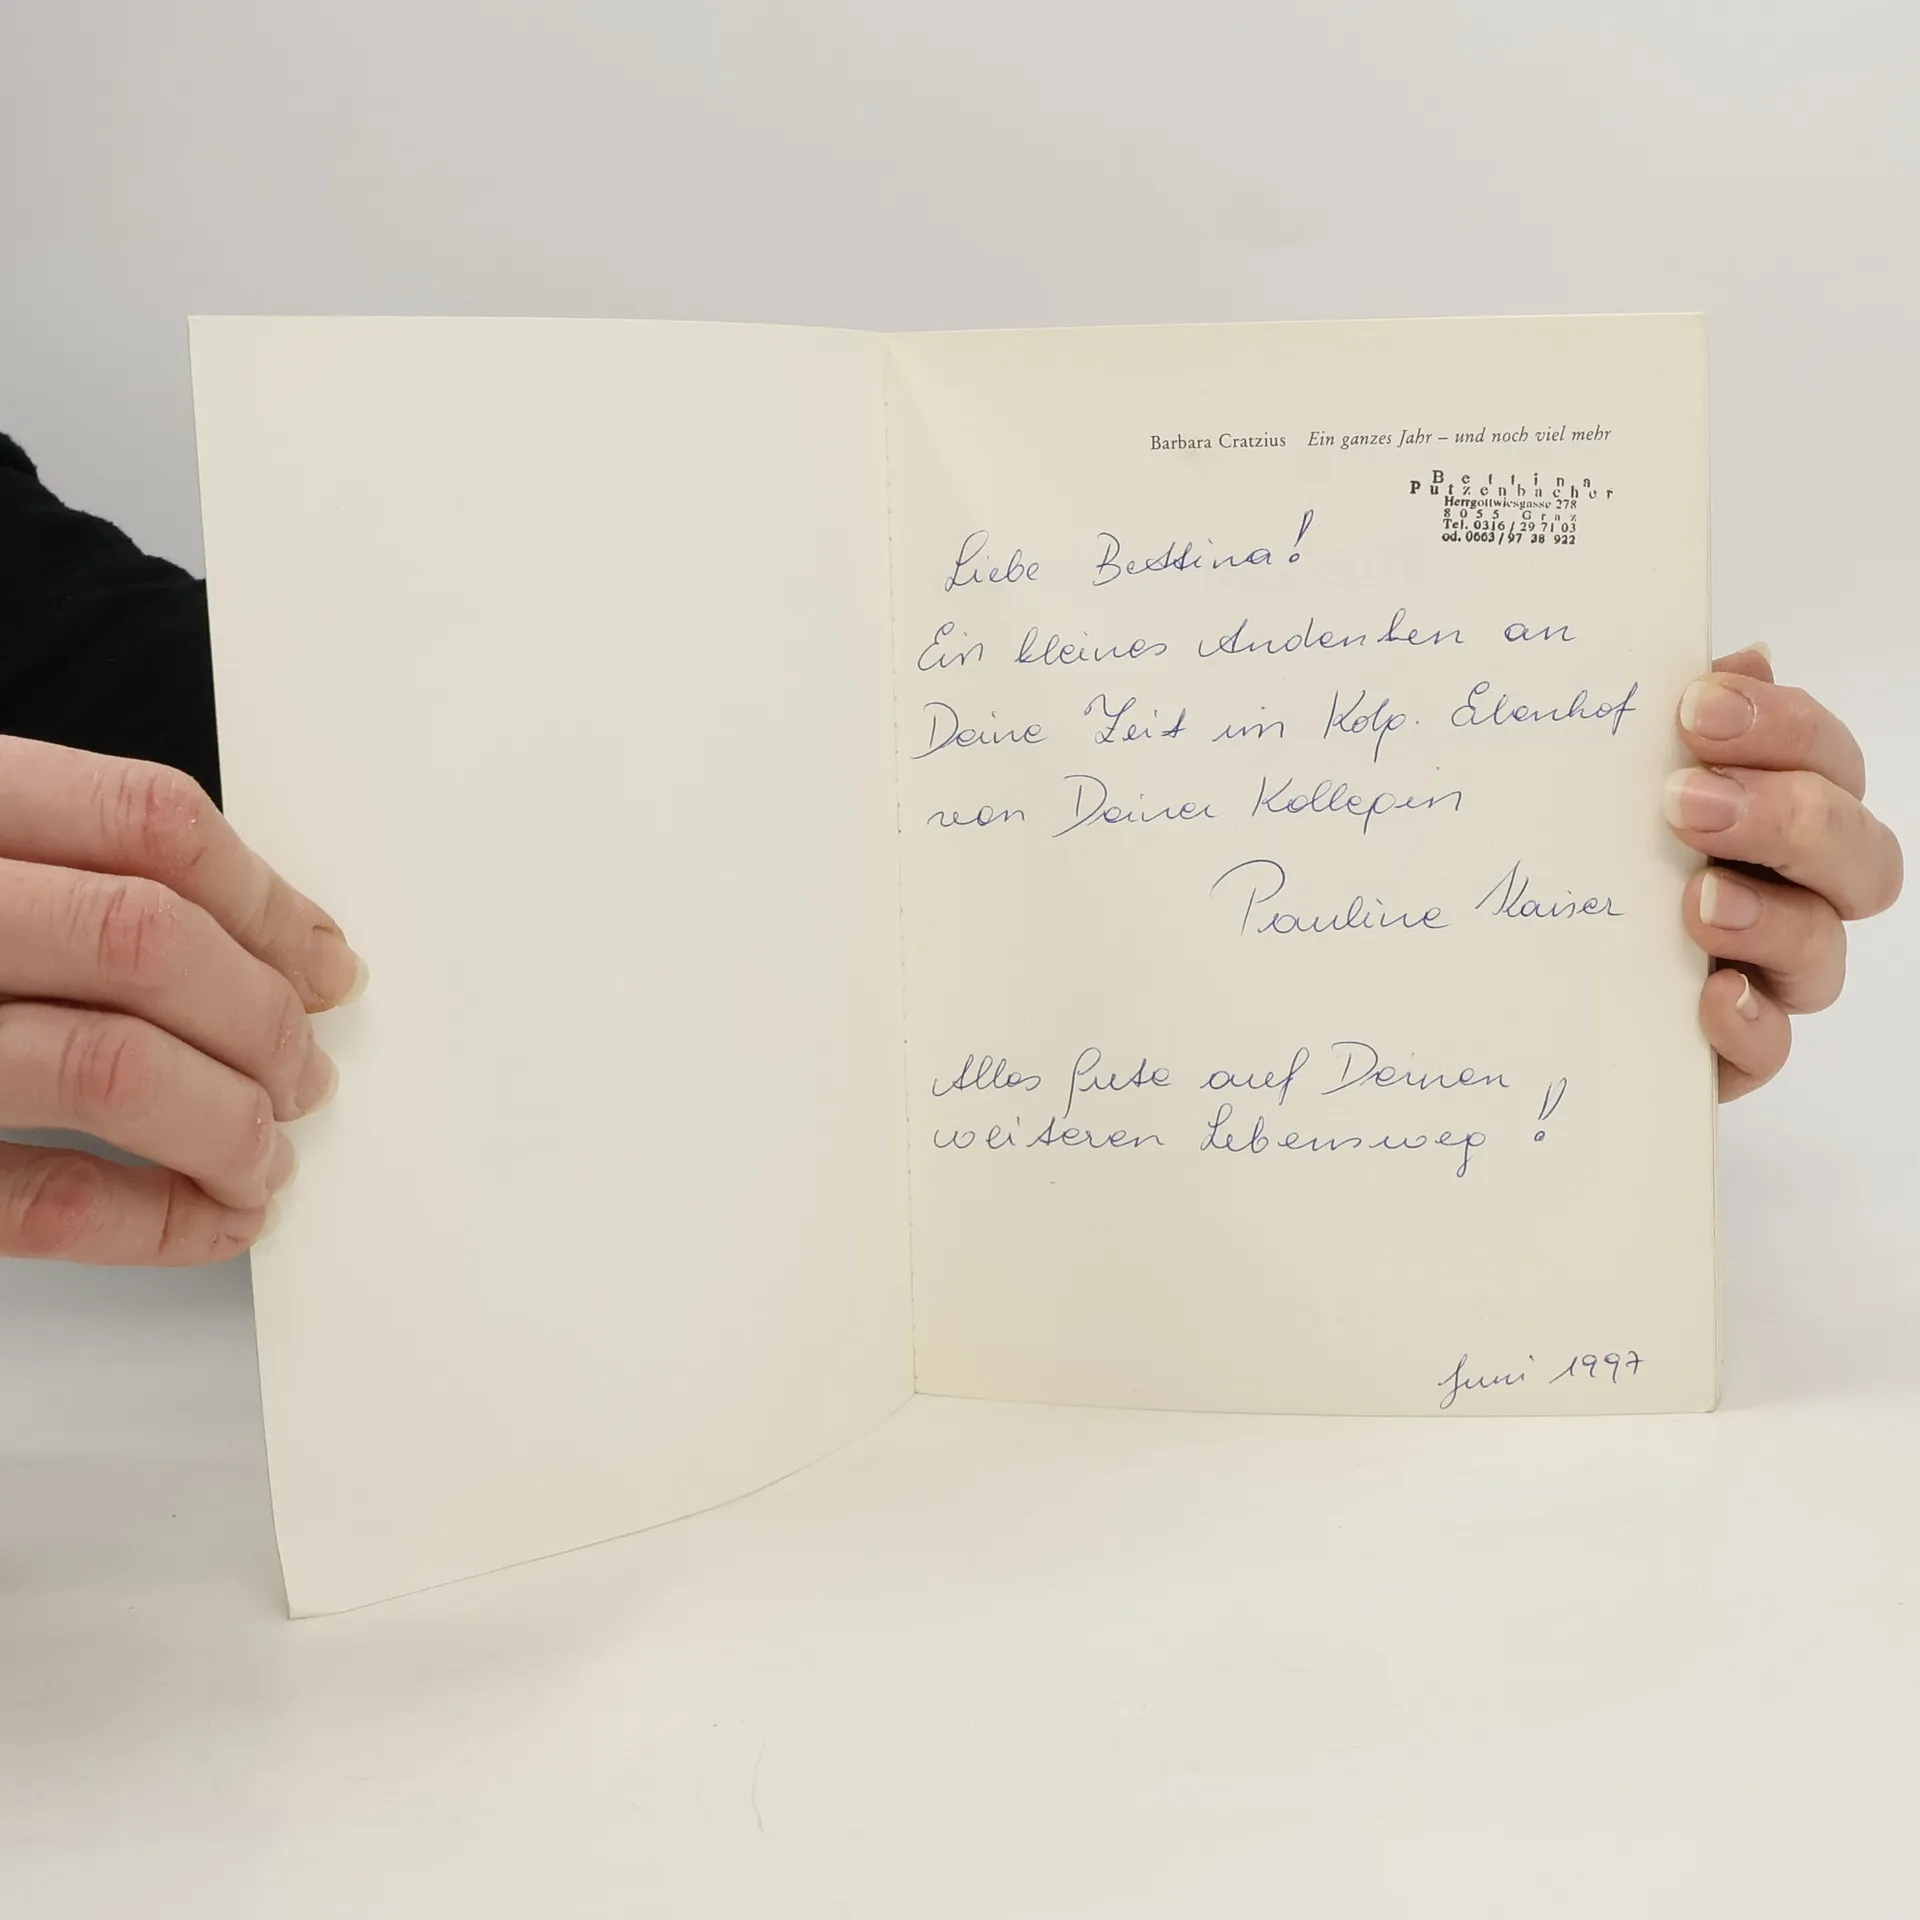 Barbara Cratzius Ein ganzes Jahr – und noch viel mehr
Bettina
Putzenbacher
Herrgottwiesgasse 278
8055 Graz
Tel. 0316/29 71 03
od. 0663/97 38 922
Liebe Bettina!
Ein kleines Andenken an
Deine Zeit im Kolp. Elenhof
von Deiner Kollegin
Pauline Kaiser
Alles Gute auf Deinen
weiteren Lebensweg!
Juni 1997